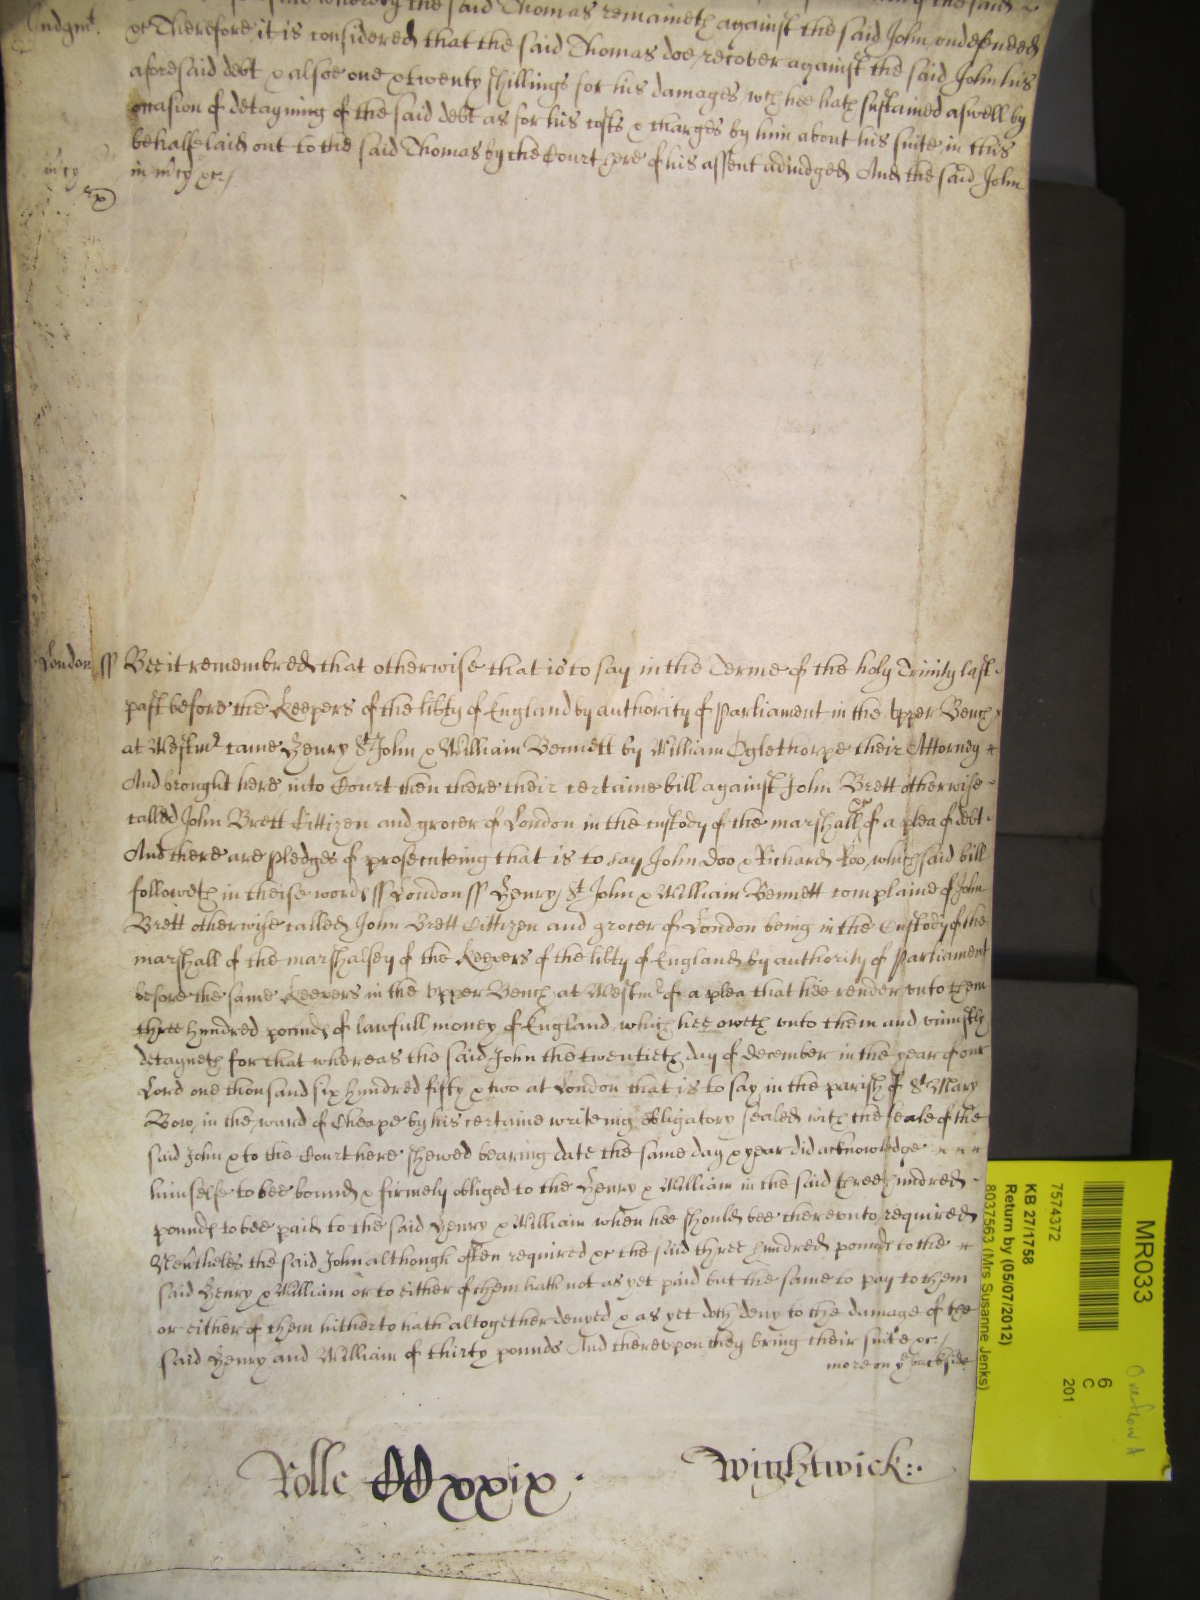 whereby the said Thomas remaineth against the said John undefended
Judgmt. &c Therefore it is considered that the said Thomas doe recover against the said John his
aforesaid debt & alsoe one & twenty shillings for his damages wch hee hath sustained aswell by
occasion of detayning of the said debt as for his costs & charges by him about his suite in this
behalfe laid out to the said Thomas by the Court here of his assent adiudged And the said John
in m'cy in m'cy &c/
London ss Bee it remembred that otherwise that is to say in the Terme of the holy Trinity last
past before the Keepers of the lib'ty of England by authority of Parliament in the Upper Bench
at Westmr came Henry St John & William Bennett by William Oglethorpe their Attorney
And brought here into Court then there their certaine bill against John Brett otherwise
called John Brett Cittizen and grocer of London in the custody of the marshall &c of a plea of debt
And there are pledges of prosecuteing that is to say John Doo & Richard Roo, which said bill
followeth in theise words ss London ss Henry St John & William Bennett complaine of John
Brett otherwise called John Brett Cittizen and grocer of London being in the Custody of the
marshall of the marshalsey of the Keepers of the lib'ty of England by authority of Parliament
before the same Keepers in the Upper Bench at Westmr of a plea that hee render unto them
three hundred pounds of lawfull money of England which hee oweth unto them and uniustly
detayneth for that whereas the said John the twentieth day of December in the year of our
Lord one thousand six hundred fifty & two at London that is to say in the parish of St Mary
Bow in the ward of Cheape by his certaine writeing obligatory sealed with the seale of the
said John & to the Court here shewed bearing date the same day & year did acknowledge
himselfe to bee bound & firmely obliged to the Henry & William in the said three hundred
pounds to bee paid to the said Henry & William when hee should bee thereunto required
Neu'theles the said John although often required &c the said three hundred pounds to the
said Henry & William or to either of them hath not as yet paid but the same to pay to them
or either of them hitherto hath altogether denyed & as yet doth deny to the damage of the
said Henry and William of thirty pounds And thereupon they bring their suite &c/
more on ye backside
Rolle CCxxix.
Wightwick:.
MR033
7574372
KB 27/1758
Return by (05/07/2012)
8037563 (Mrs Susanne Jenks)
6
C
201
Overflow A